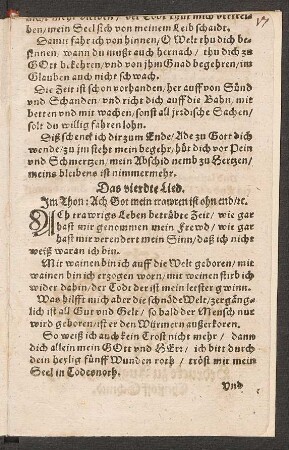 ben/mein Seel sich von meinem Leib schaidt.
Damit fahr ich von hinnen/O Welt thu dich be-
sinnen/wann du must auch hernach/ thu dich zu
GOtt bekehren/vnd von jhm Gnad begehren/im
Glauben auch nicht schwach.
Die Zeit ist schon vorhanden/her auff von Sünd
vnd Schanden/vnd richt dich auff die Bahn/mit
betten vnd mit wachen/sonst all jrrdische Sachen/
solt du willig fahren lohn.
Diß schenck ich dir zum Ende/Ade zu Gott dich
wende/zu jm steht mein begehr/hüt dich vor Pein
vnd Schmertzen/mein Abschid nemb zu Hertzen/
meins bleibens ist nimmermehr.
Das vierdte Lied.
Im Thon: Ach Got mein trawren ist ohn end/ꝛc.
ACh trawrigs Leben betrübte Zeit/ wie gar
hast mir genommen mein Frewd/ wie gar
hast mir verendert mein Sinn/daß ich nicht
weiß waran ich bin.
Mit wainen bin ich auff die Welt geboren/mit
wainen bin ich erzogen worn/mit weinen stirb ich
wider dahin/der Tod der ist mein letster gwinn.
Was hilfft mich aber die schnöde Welt/zergäng-
lich ist all Gut vnd Gelt/ so bald der Mensch nur
wird geboren/ist er den Würmern außerkoren.
So weiß ich auch kein Trost nicht mehr/ dann
dich allein mein GOtt vnd HErr/ ich bitt durch
dein heylig fünff Wunden roth/ tröst mit mein
Seel in Todesnoth.
Vnd